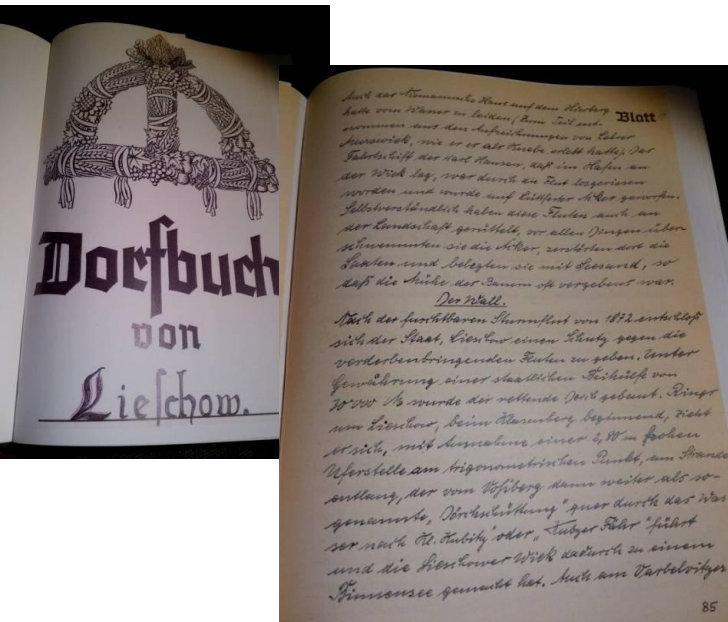 Dorfbuch
von
Lieschow.
Blatt
Auch das Haus auf dem
hatte vom Wasser zu leiden (Zum Teil ent-
nommen aus den Aufzeichnungen von Lehrer
wie er es als Knabe erlebt hatte). Das
der Karl Hansen, daß im Hafen an
der Wiek lag, war durch die Flut losgerissen
worden und wurde auf Acker geworfen.
Selbstverständlich haben diese Fluten auch an
der Landschaft gerüttelt, vor allen Dingen über-
schwemmten sie die Äcker, zerstörten dort die
Saaten und belegten sie mit Seesand, so
daß die Mühe der Bauern oft vergebens war.
Der Wall.
Nach der furchtbaren Sturmflut von 1872 entschloß
sich der Staat, Lieschow einen Schutz gegen die
verderbenbringenden Fluten zu geben. Unter
Gewährung einer staatlichen Beihülfe von
wurde der rettende Deich gebaut. Rings
um Lieschow, beim beginnend, zieht
er sich, mit Ausnahme einer hohen
Uferstelle am trigonometrischen Punkt, am Strande
entlang, der vom Voßberg dann weiter als so-
genannte, quer durch das Was
ser nach Kl. Kubitz oder führt
und die Lieschower Wiek dadurch zu einem
Binnensee gemacht hat. Auch am Varbelvitzer
85